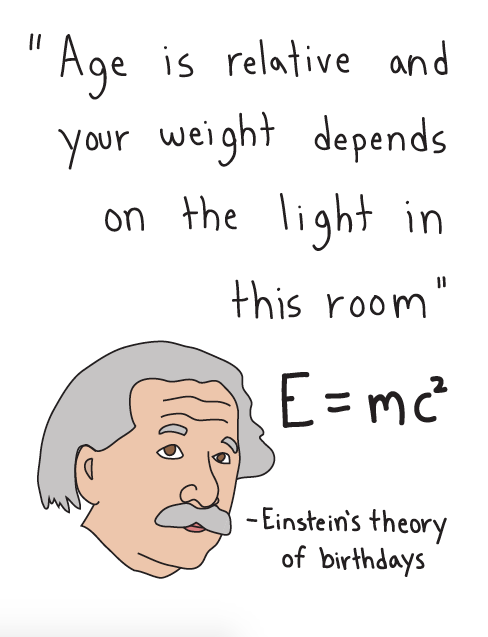 " Age is relative and
your weight depends
on the light in
this room"
E = mc²
-Einstein's theory
of birthdays